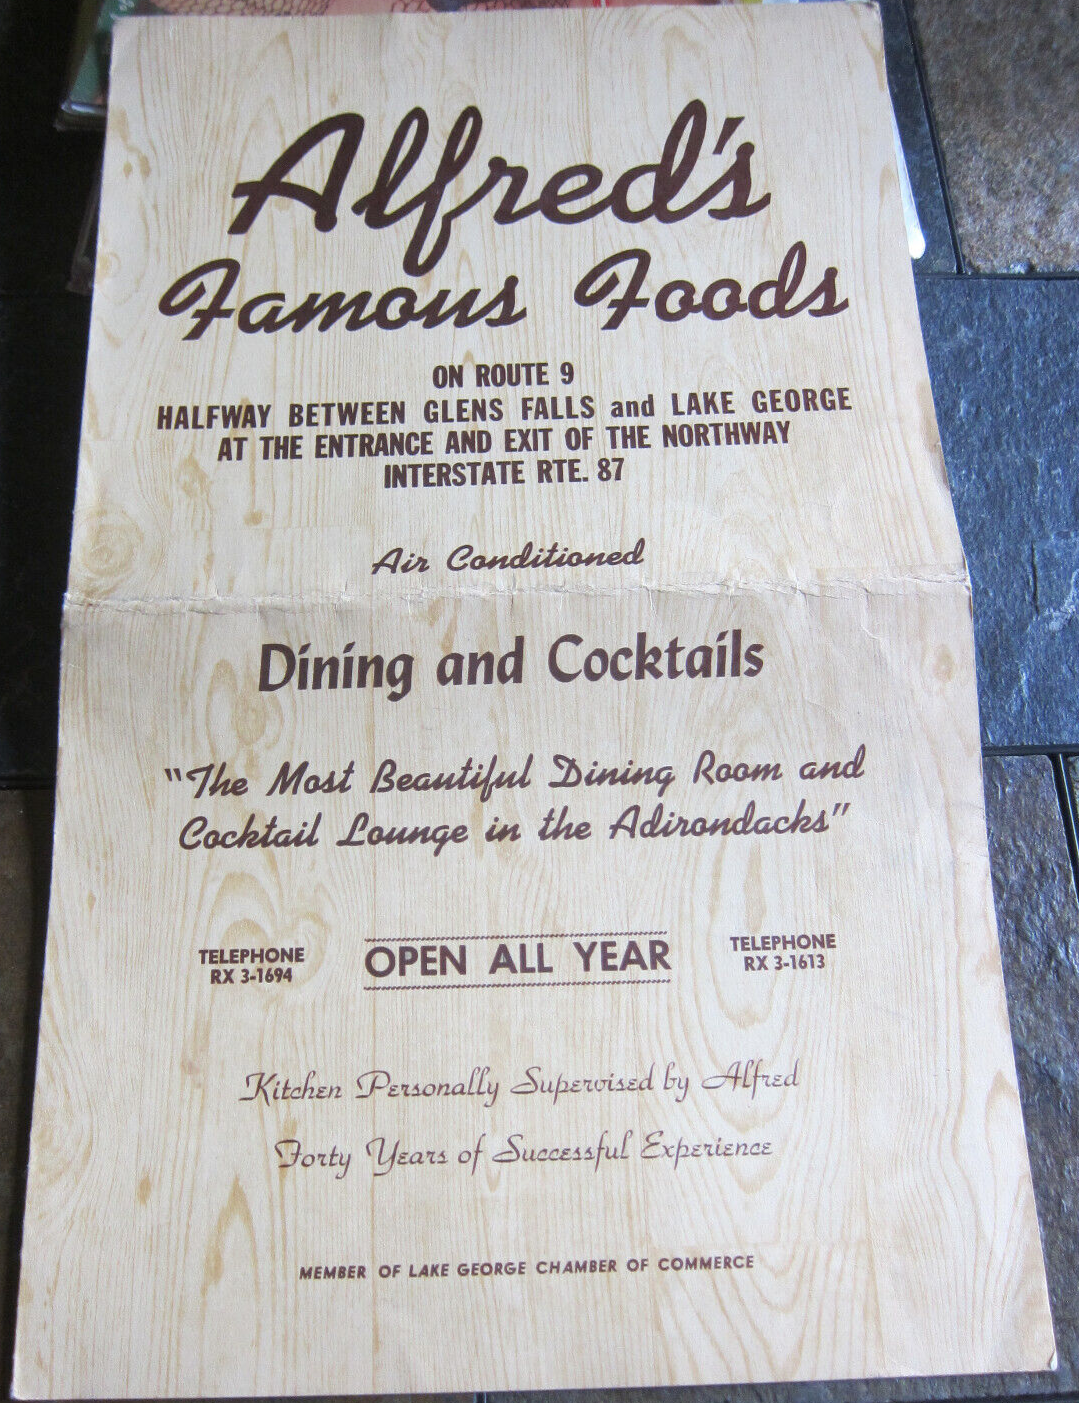 Alfred's
Famous Foods
ON ROUTE 9
HALFWAY BETWEEN GLENS FALLS and LAKE GEORGE
AT THE ENTRANCE AND EXIT OF THE NORTHWAY
INTERSTATE RTE. 87
Air Conditioned
Dining and Cocktails
"The Most Beautiful Dining Room and
Cocktail Lounge in the Adirondacks"
TELEPHONE
RX 3-1694
OPEN ALL YEAR
TELEPHONE
RX 3-1613
Kitchen Personally Supervised by Alfred
Forty Years of Successful Experience
MEMBER OF LAKE GEORGE CHAMBER OF COMMERCE